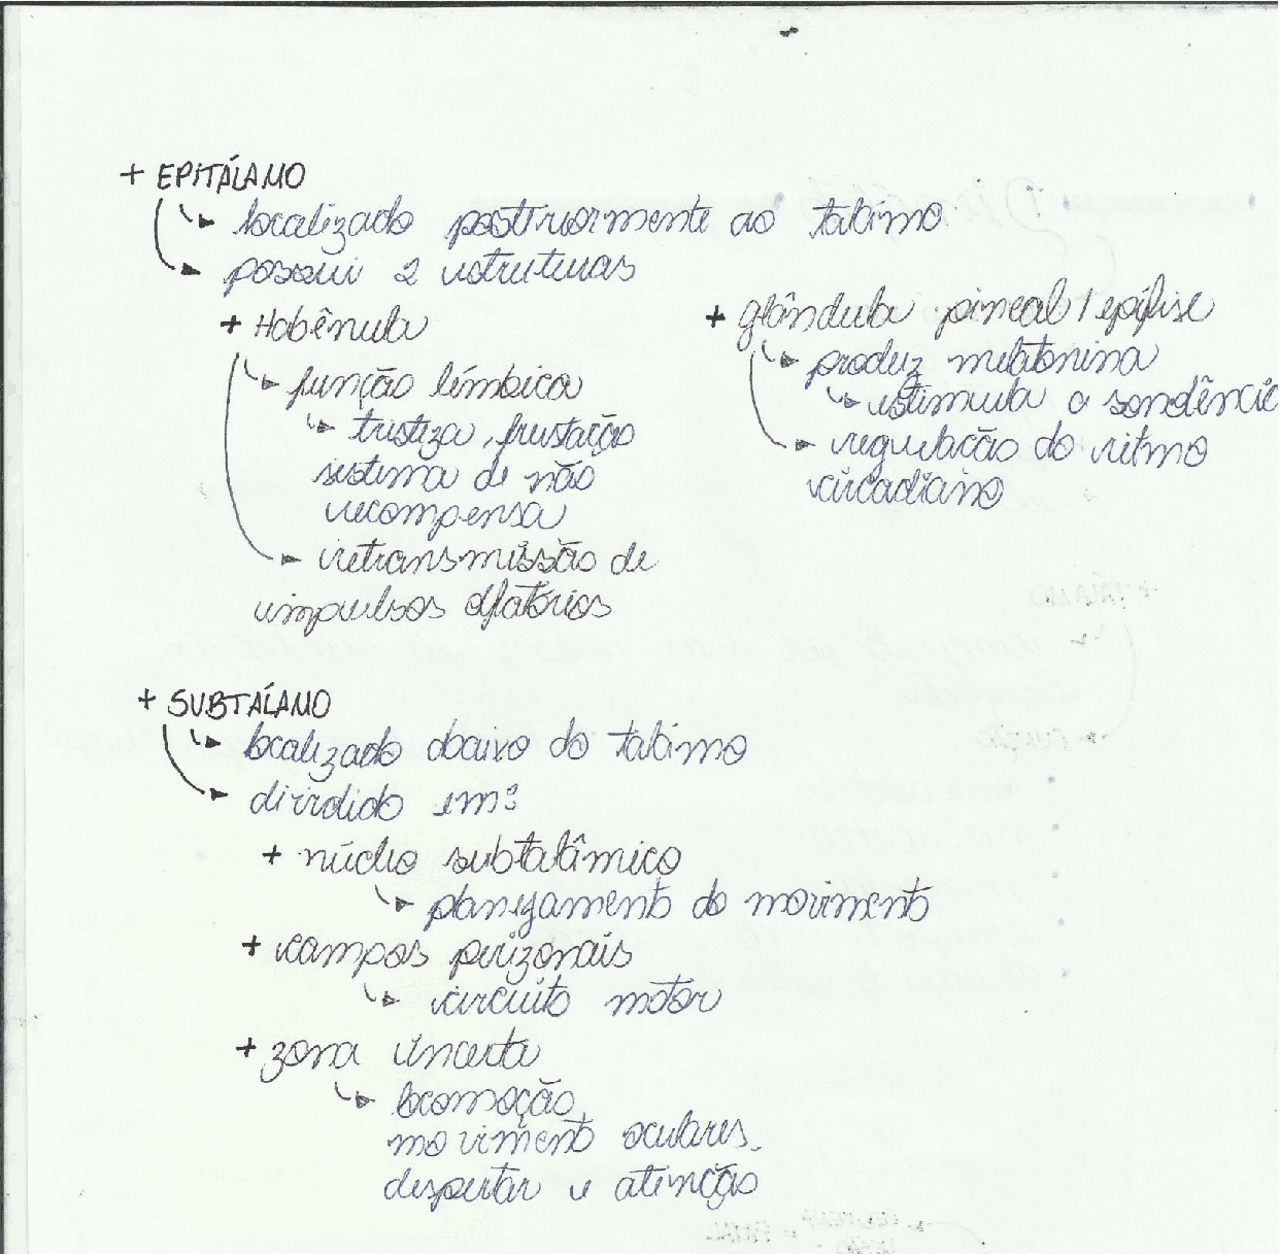 + EPITÁLAMO
localizado posteriormente ao tálamo
possui 2 estruturas
+ Habênula
função límbica
tristeza, frustação
sistema de não
recompensa
retransmissão de
impulsos olfatórios
+ glândula pineal / epífise
produz melatonina
estimula a sondência
regulação do ritmo
circadiano
+ SUBTÁLAMO
localizado abaixo do tálamo
dividido em:
+ núcleo subtalâmico
planejamento do movimento
+ campos perizonais
circuito motor
+ zona incerta
locomoção,
movimento oculares,
despertar e atenção